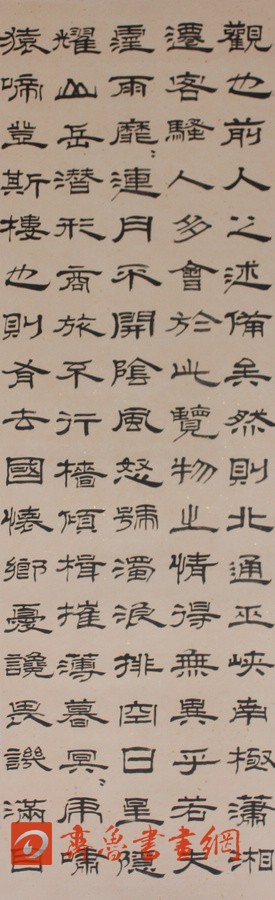 觀也前人之述備矣然則北通巫峽南極瀟湘
遷客騷人多會於此覽物之情得無異乎若夫
霪雨霏〻連月不開陰風怒號濁浪排空日星隱
耀山岳潛形商旅不行檣傾楫摧薄暮冥〻虎嘯
猿啼登斯樓也則有去國懷鄉憂讒畏譏滿目
齊魯書畫網